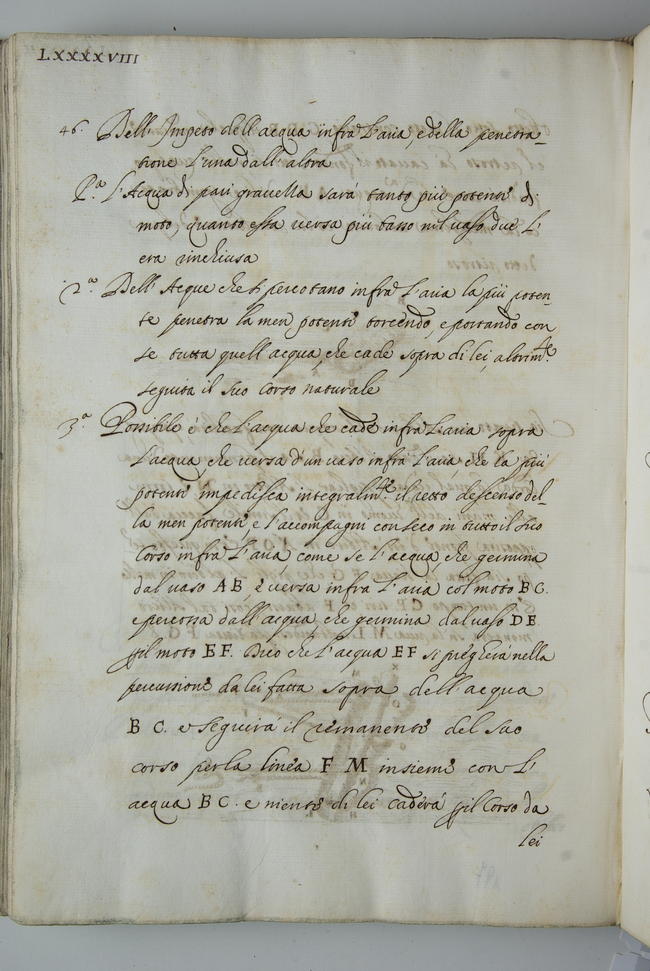 LXXXXVIII
46. Dell'Impeto dell'acqua infra l'aria, e della penetra-
tione l'una dall'altra
P.a L'Acqua di pari gravella sarà tanto più potente di
moto, quanto essa versa più basso nil vaso dve l'
era inchiusa
2.a Dell'Acque che si percotano infra l'aria la più poten-
te penetra la men potente torcendo, e portando con
se tutta quell'acqua, che cade sopra di lei, altrim.te
seguita il suo corso naturale
3.a Possibile è che l'acqua che cade infra l'aria sopra
l'acqua, che versa d'un vaso infra l'aria che la più
potente impedisca integralm.te il retto descenso del-
la men potente, e l'accompagni con seco in tutto il suo
corso infra l'aria, come se l'acqua, che germina
dal vaso AB, è versa infra l'aria col moto BC.
e percossa dall'acqua, che germina dal vaso DE
p il moto EF. Dico che l'acqua EF si pieghera nella
percussione da lei fatta sopra dell'acqua
BC. e seguirà il rimanente del suo
corso per la linea FM insieme con l'
acqua BC. e niente di lei caderà p il corso da
lei